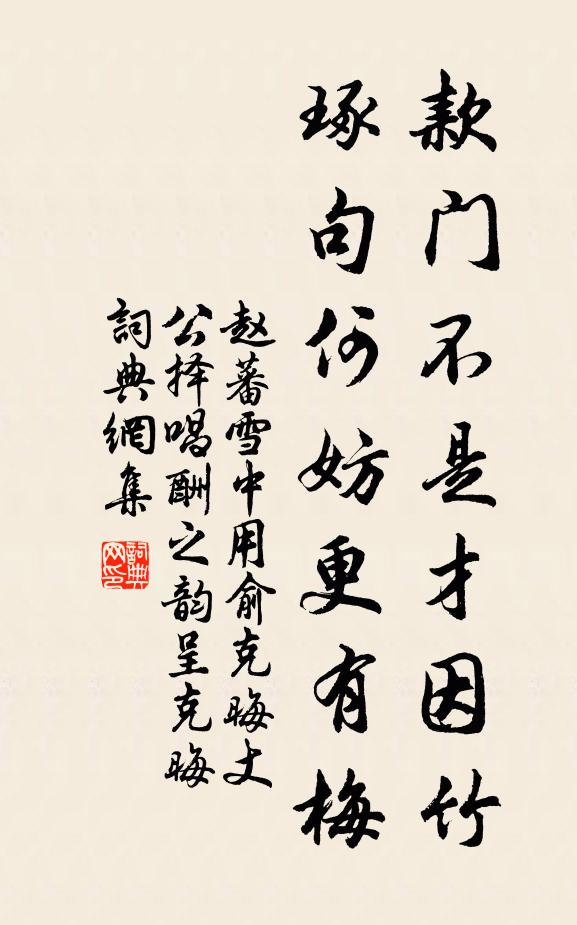 款门不是才因竹
琢句何妨更有梅
赵蕃雪中用俞克晦丈
公择唱酬之韵呈克晦
詞典網集
詞典
网印